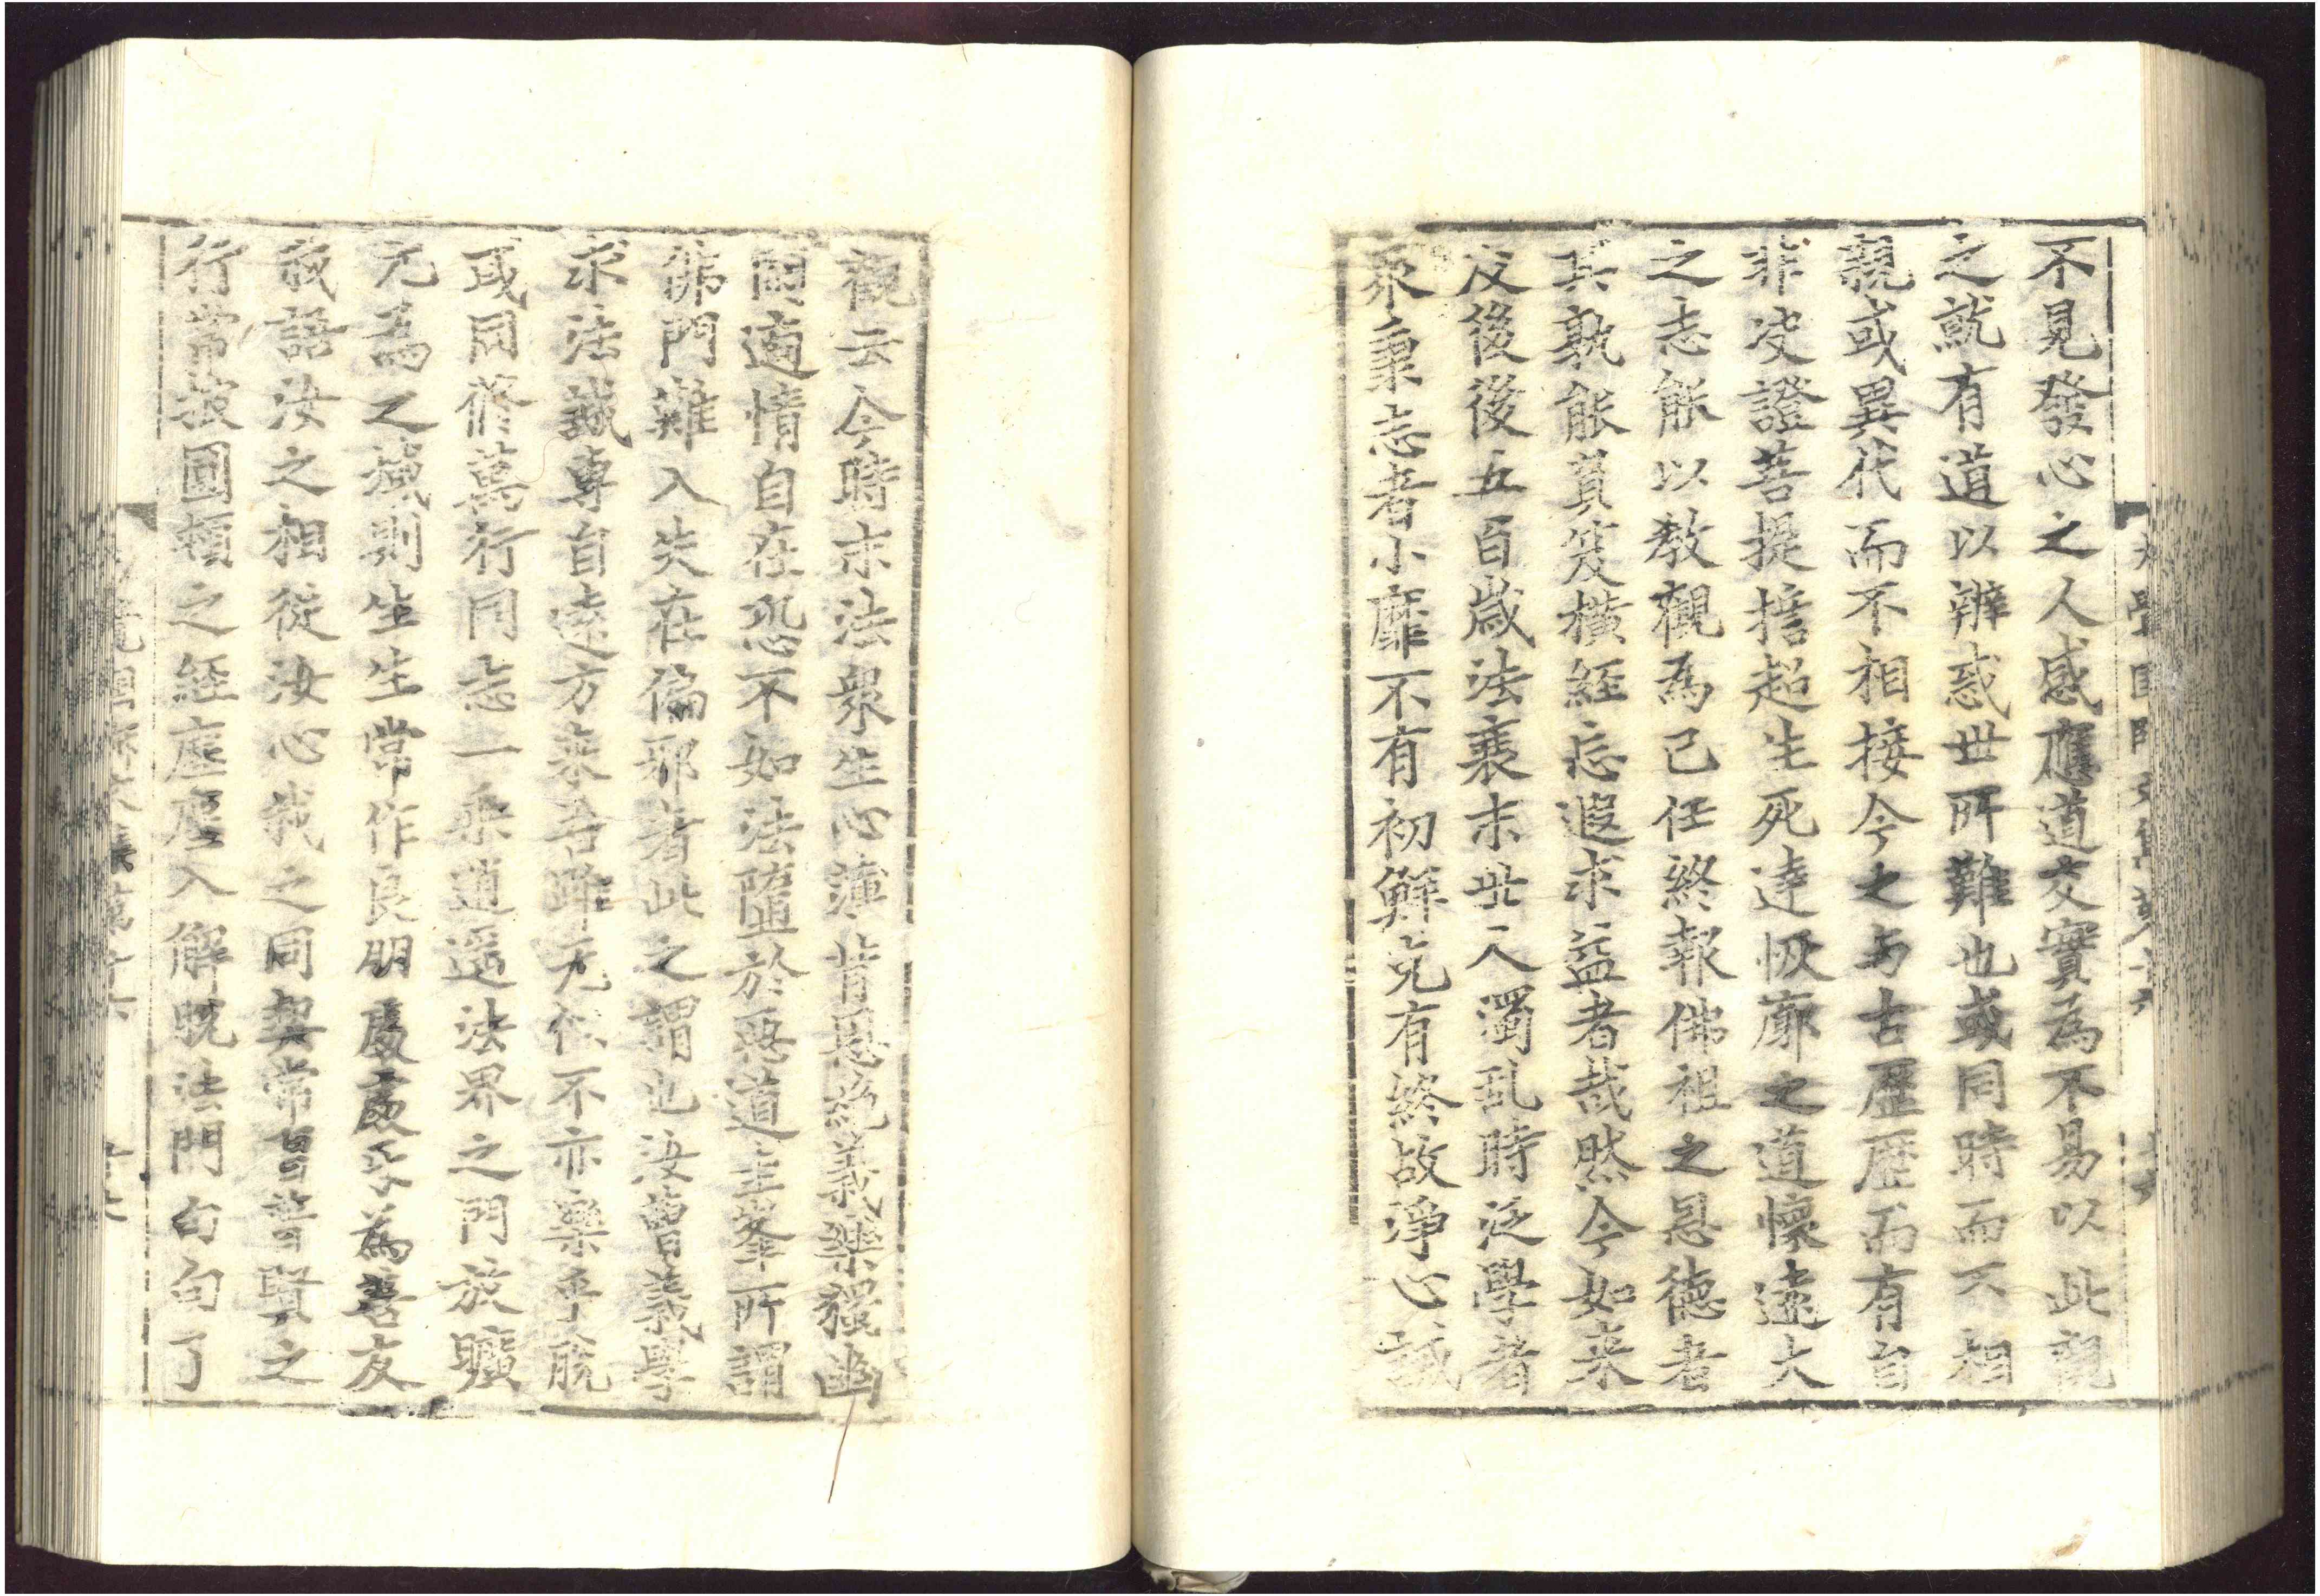 不見發心之人感應道交實為不易以此親
之就有道以辨惑世所難也或同時而不相
親或異代而不相接今之与古歷歷而有自
非決證菩提擔超生死達恢廓之道懷遠大
之志能以教觀為己任終報佛祖之恩德者
其孰能負笈橫經忘遐求益者哉然今如来
及後後五百歲法衰末世人濁乱時泛學者
衆秉志者小靡不有初鮮克有終故淨心誡
觀云今時末法衆生心薄背恩絶義樂獵幽
閑適情自在恐不如法墮於惡道圭峯所謂
佛門難入失在偏邪者此之謂也汝曹義學
求法誠專自遠方来吾歸无德不亦樂乎脫
或同修萬行同志一乘逍遥法界之門放曠
无為之域則生生常作良朋處處长為善友
敬語汝之相從汝心我之同契常習普賢之
行常披國權之經塵塵入解脫法門句句了